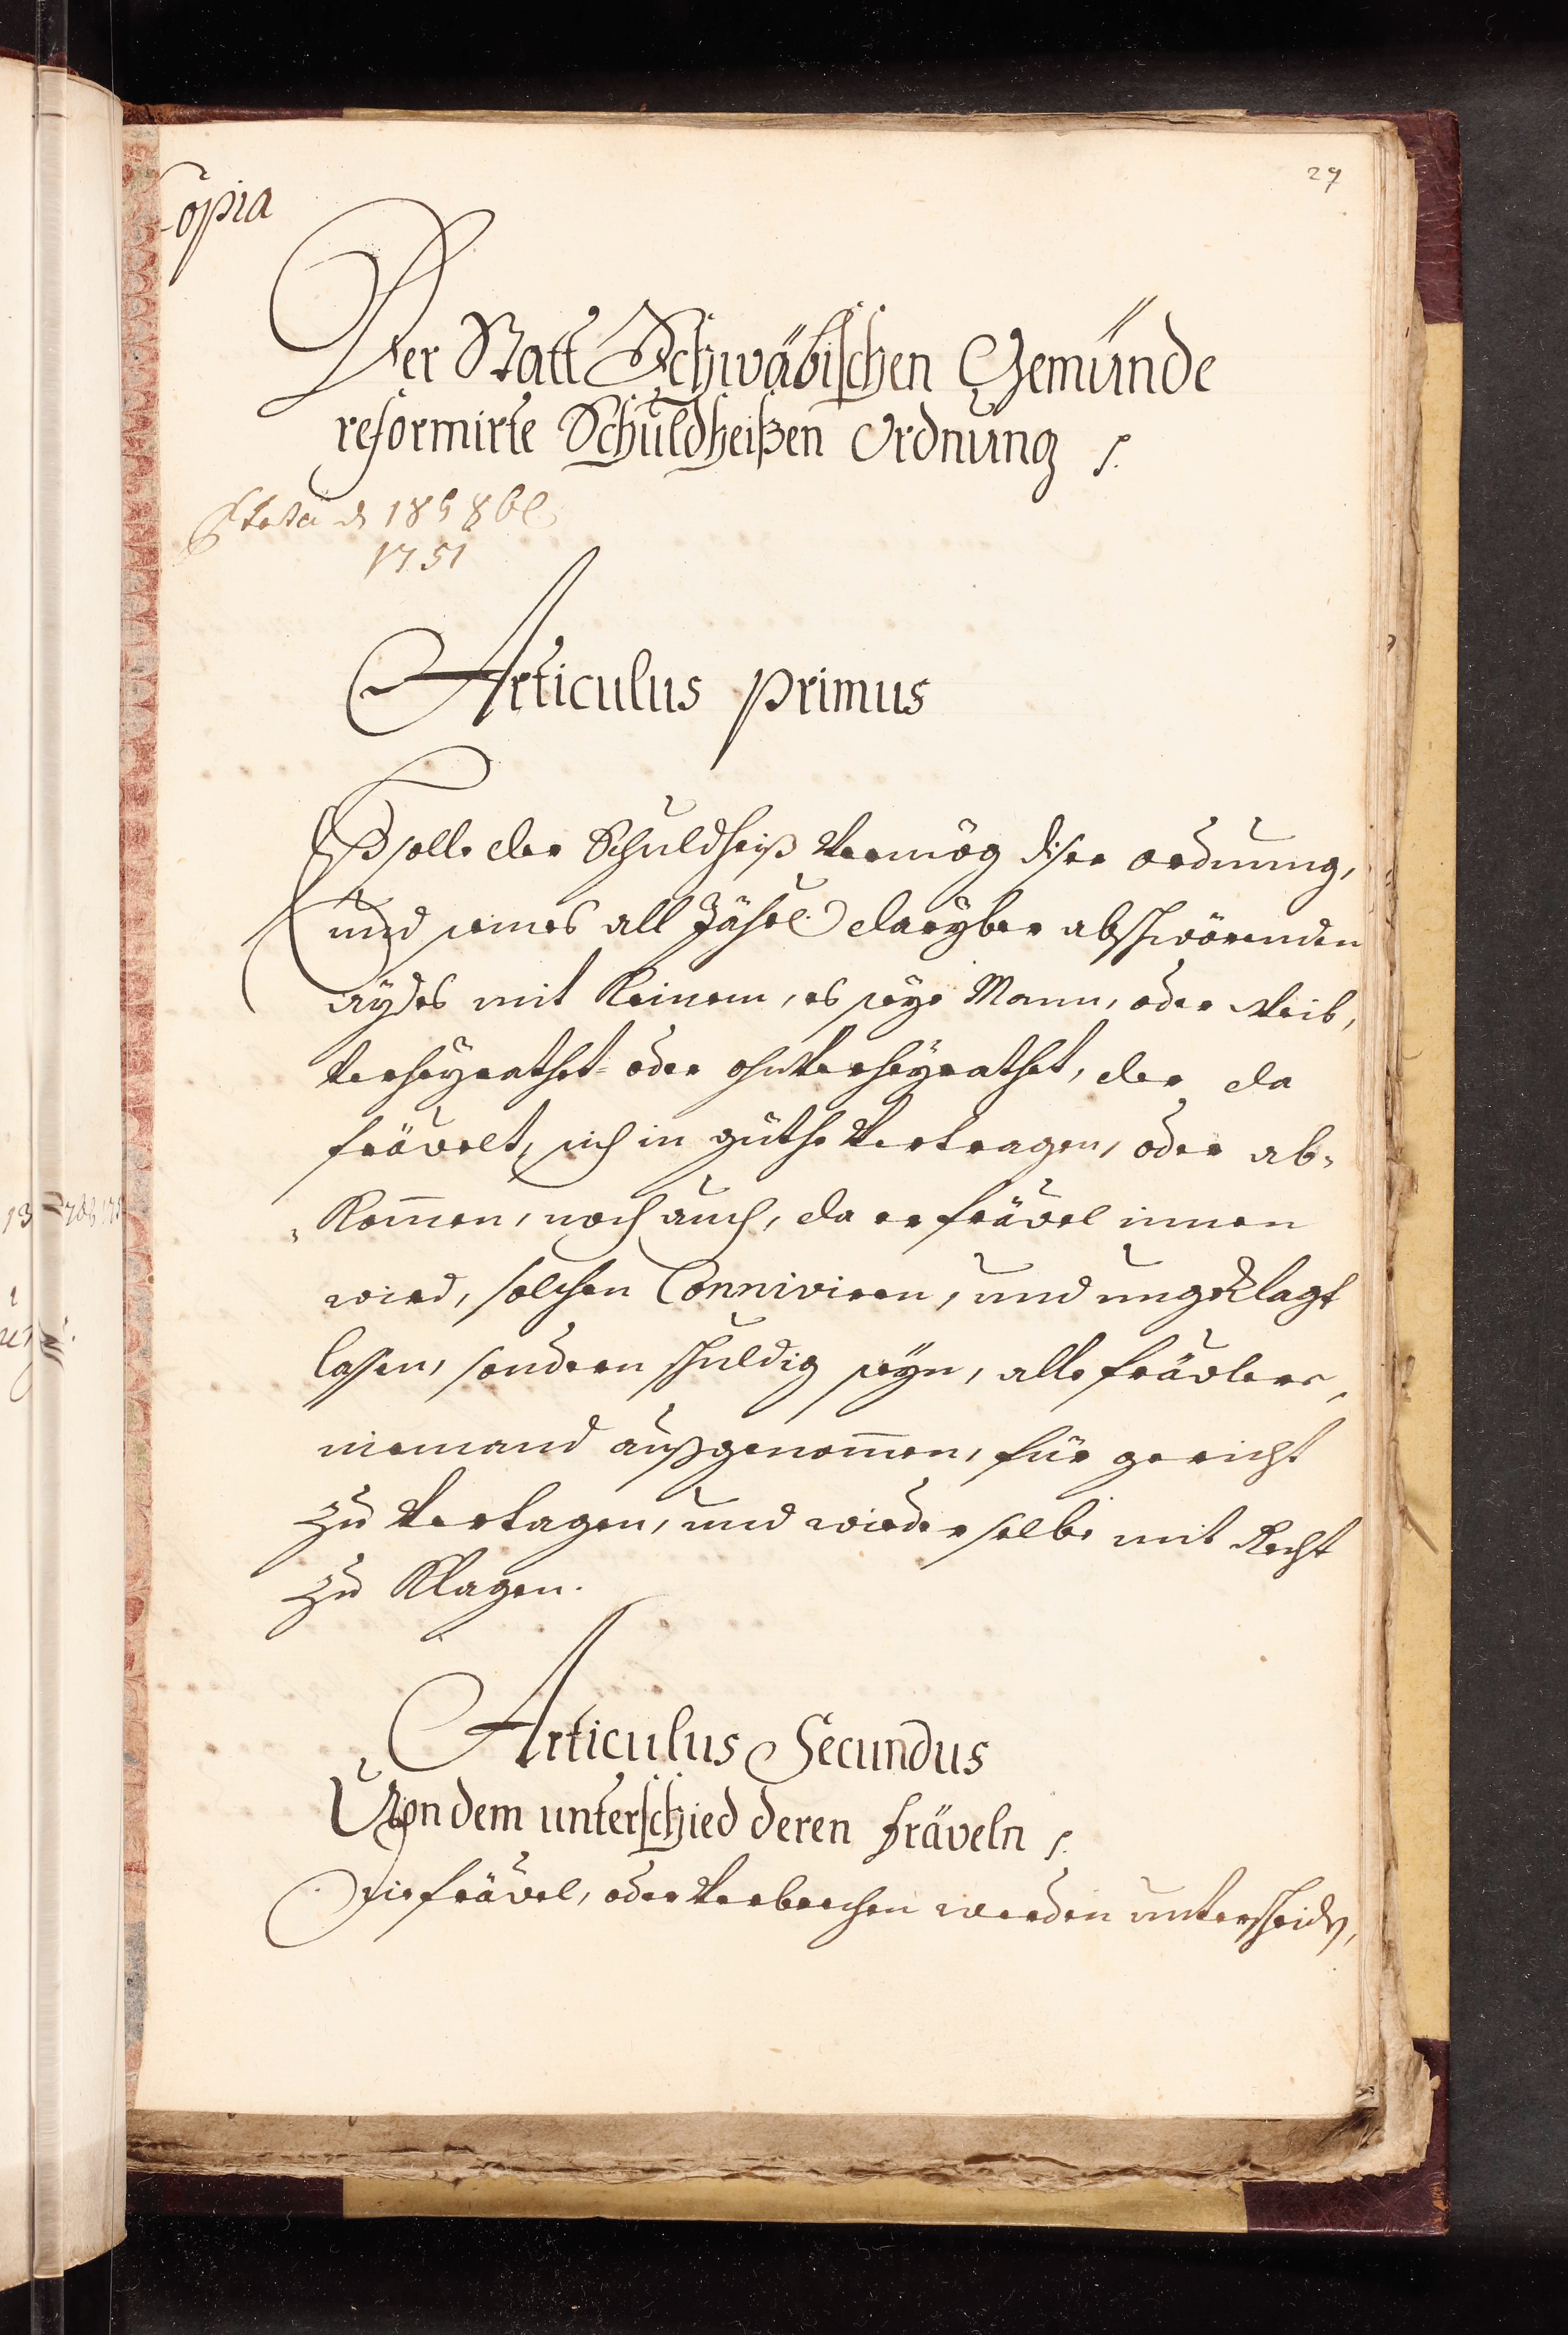 29
Copia
Der Statt Schwäbischen Gemünde
reformirte Schuldheißen Ordnung
8bl
1751
Articulus Primus
Eß solle der Schuldheiß Vermög diser ordnung,
und seines all Jährl. darÿber abschwörenden
aÿdes mit Keinem, es seÿe Mann, oder Weib,
Verheÿrathet- oder ohnVerheÿrathet, der da
frävelt, sich in güthe Vertragen, oder ab-
Kom̄en, noch auch, da er frävel innen
wird, solchen Conniviren, und ungeklagt
lassen, sondern schuldig seÿn, alle frävlere,
niemand außgenom̄en, für gericht
zu Vertagen, und wieder selbe mit Recht
zu Klagen.
Articulus Secundus
Von dem unterschied deren fräveln
Die frävel, oder Verbrechen werden unterscheidn,